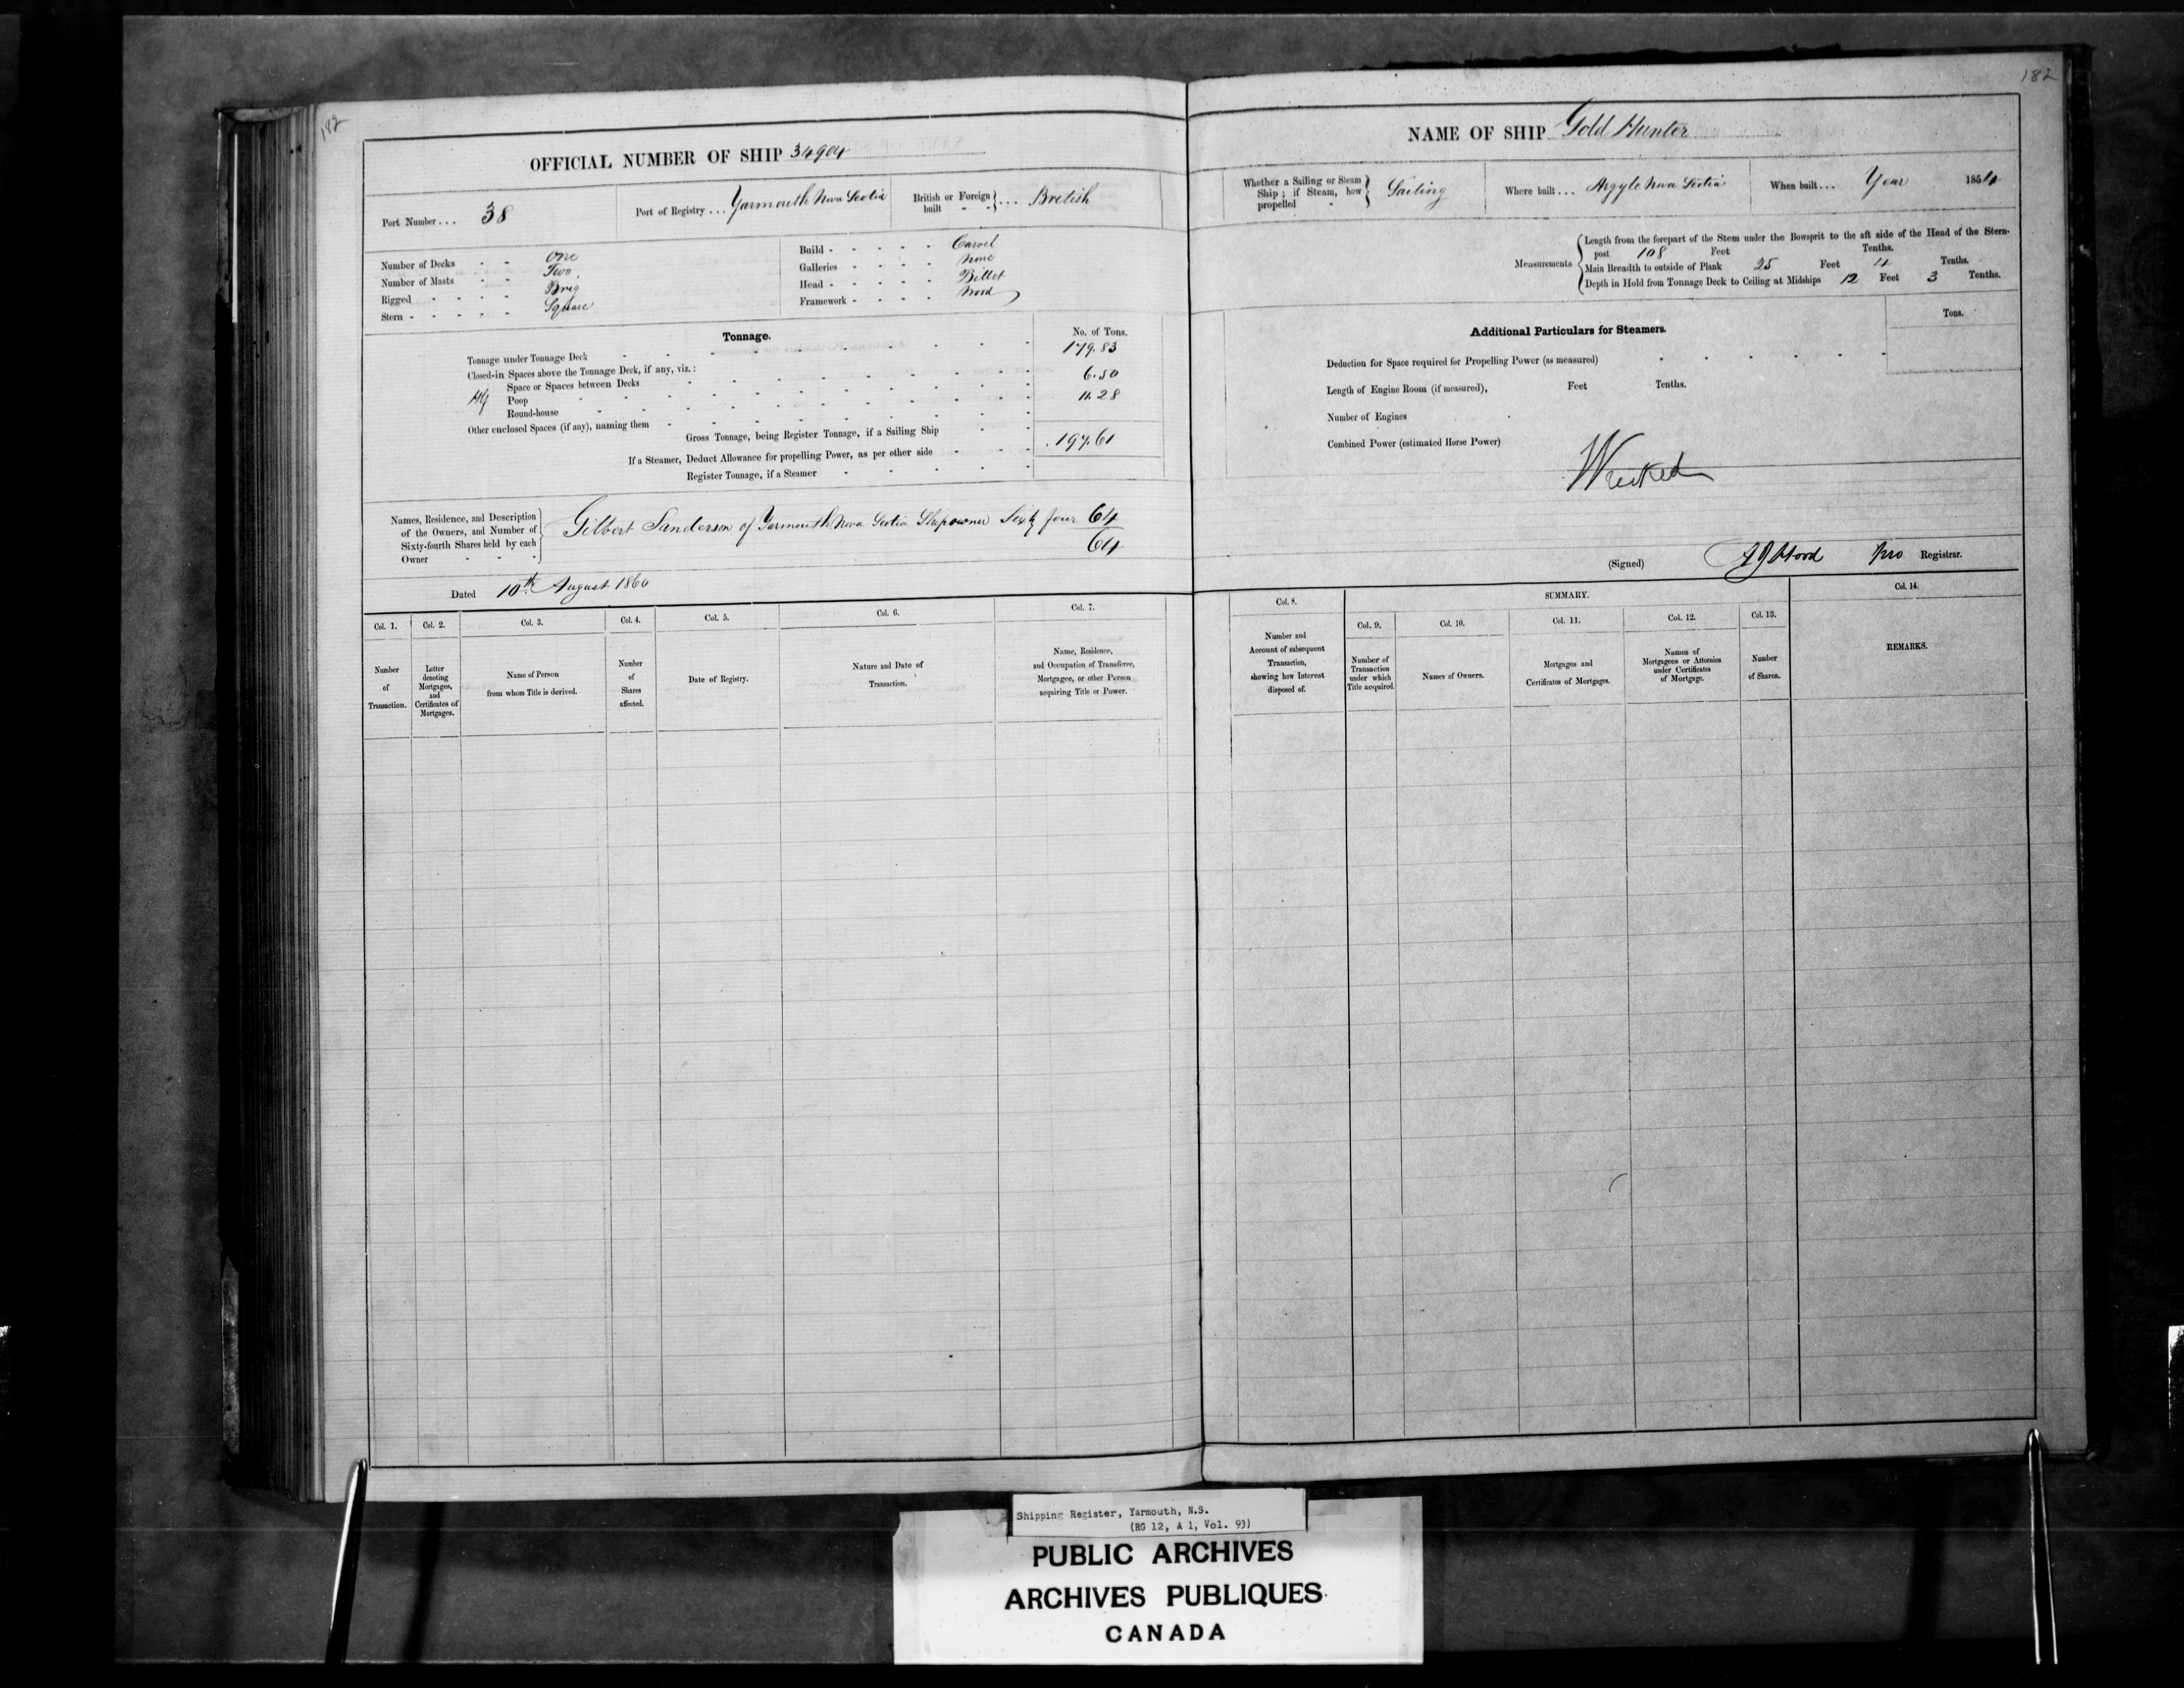 182
182
OFFICIAL NUMBER OF SHIP 34904
Port Number ... 38
Port of Registry ... Yarmouth Nova Scotia
British or Foreign built ... British
Number of Decks One
Number of Masts Two
Rigged Brig
Stern Square
Build Carvel
Galleries None
Head Billet
Framework Wood
Tonnage.
No. of Tons.
Tonnage under Tonnage Deck 179.83
Closed-in Spaces above the Tonnage Deck, if any, viz.:
Space or Spaces between Decks 6.50
Poop 11.28
Round-house
Other enclosed Spaces (if any), naming them
Gross Tonnage, being Register Tonnage, if a Sailing Ship 197.61
If a Steamer, Deduct Allowance for propelling Power, as per other side
Register Tonnage, if a Steamer
Names, Residence, and Description of the Owners, and Number of Sixty-fourth Shares held by each Owner
Gilbert Sanderson of Yarmouth Nova Scotia Shipowner Sixty four 64
64
Dated 10th August 1860
Col. 1. Col. 2. Col. 3. Col. 4. Col. 5. Col. 6. Col. 7.
Number of Transaction.
Letter denoting Mortgages, and Certificates of Mortgages.
Name of Person from whom Title is derived.
Number of Shares affected.
Date of Registry.
Nature and Date of Transaction.
Name, Residence, and Occupation of Transferee, Mortgagee, or other Person acquiring Title or Power.
NAME OF SHIP Gold Hunter
Whether a Sailing or Steam Ship; if Steam, how propelled Sailing
Where built ... Argyle Nova Scotia
When built ... Year 1854
Measurements
Length from the forepart of the Stem under the Bowsprit to the aft side of the Head of the Stern-
post 108 Feet Tenths.
Main Breadth to outside of Plank 25 Feet 4 Tenths.
Depth in Hold from Tonnage Deck to Ceiling at Midships 12 Feet 3 Tenths.
Additional Particulars for Steamers.
Tons.
Deduction for Space required for Propelling Power (as measured)
Length of Engine Room (if measured), Feet Tenths.
Number of Engines
Combined Power (estimated Horse Power)
Wrecked
(Signed) Hood Pro Registrar.
SUMMARY.
Col. 8. Col. 9. Col. 10. Col. 11. Col. 12. Col. 13. Col. 14.
Number and Account of subsequent Transaction, showing how Interest disposed of.
Number of Transaction under which Title acquired.
Names of Owners.
Mortgages and Certificates of Mortgages.
Names of Mortgagees or Attornies under Certificates of Mortgage.
Number of Shares.
REMARKS.
Shipping Register, Yarmouth, N.S.
(RG 12, A 1, Vol. 93)
PUBLIC ARCHIVES
ARCHIVES PUBLIQUES
CANADA